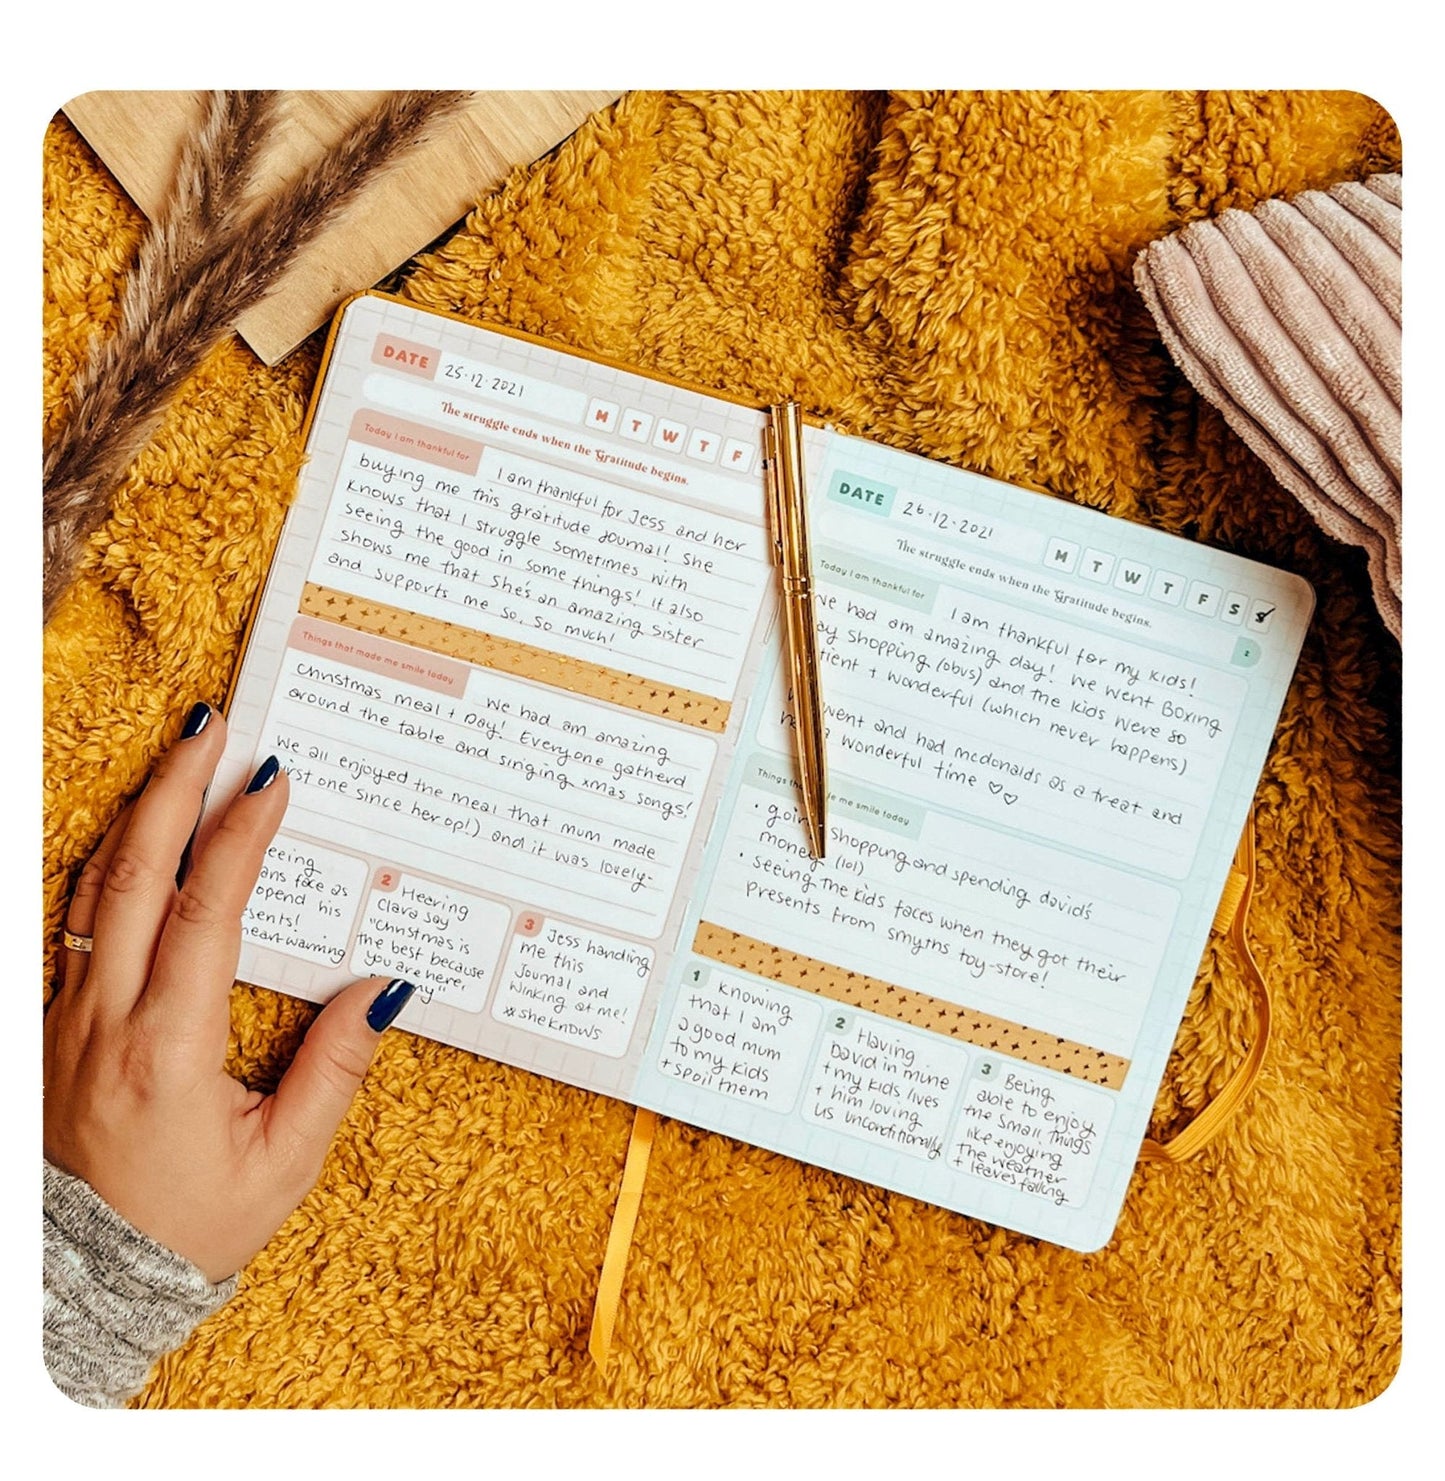 DATE 25.12.2021
M T W T F
The struggle ends when the Gratitude begins.
Today I am thankful for
I am thankful for Jess and her
buying me this gratitude journal! She
knows that I struggle sometimes with
seeing the good in some things! It also
shows me that she's an amazing sister
and supports me so, so much!
Things that made me smile today
We had am amazing
Christmas meal + Day! Everyone gatherd
around the table and singing xmas songs!
We all enjoyed the meal that mum made
first one since her op!) and it was lovely-
face as
opend his
heart-warming
2 Hearing
Clara say
"Christmas is
the best because
you are here,
3 Jess handing
me this
Journal and
winking at me!
*she knows
DATE 26.12.2021
M T W T F S S
The struggle ends when the Gratitude begins.
2
Today I am thankful for
I am thankful for my kids!
We had am amazing day! We went Boxing
shopping (obvs) and the kids were so
+ wonderful (which never happens)
went and had mcdonalds as a treat and
a wonderful time ♡♡
Things me smile today
• going shopping and spending david's
money (lol)
• seeing the kids faces when they got their
presents from smyths toy-store!
1 Knowing
that I am
a good mum
to my kids
+ spoil them
2 Having
David in mine
+ my kids lives
+ him loving
us unconditionally
3 Being
able to enjoy
the small things
like enjoying
the weather
+ leaves falling